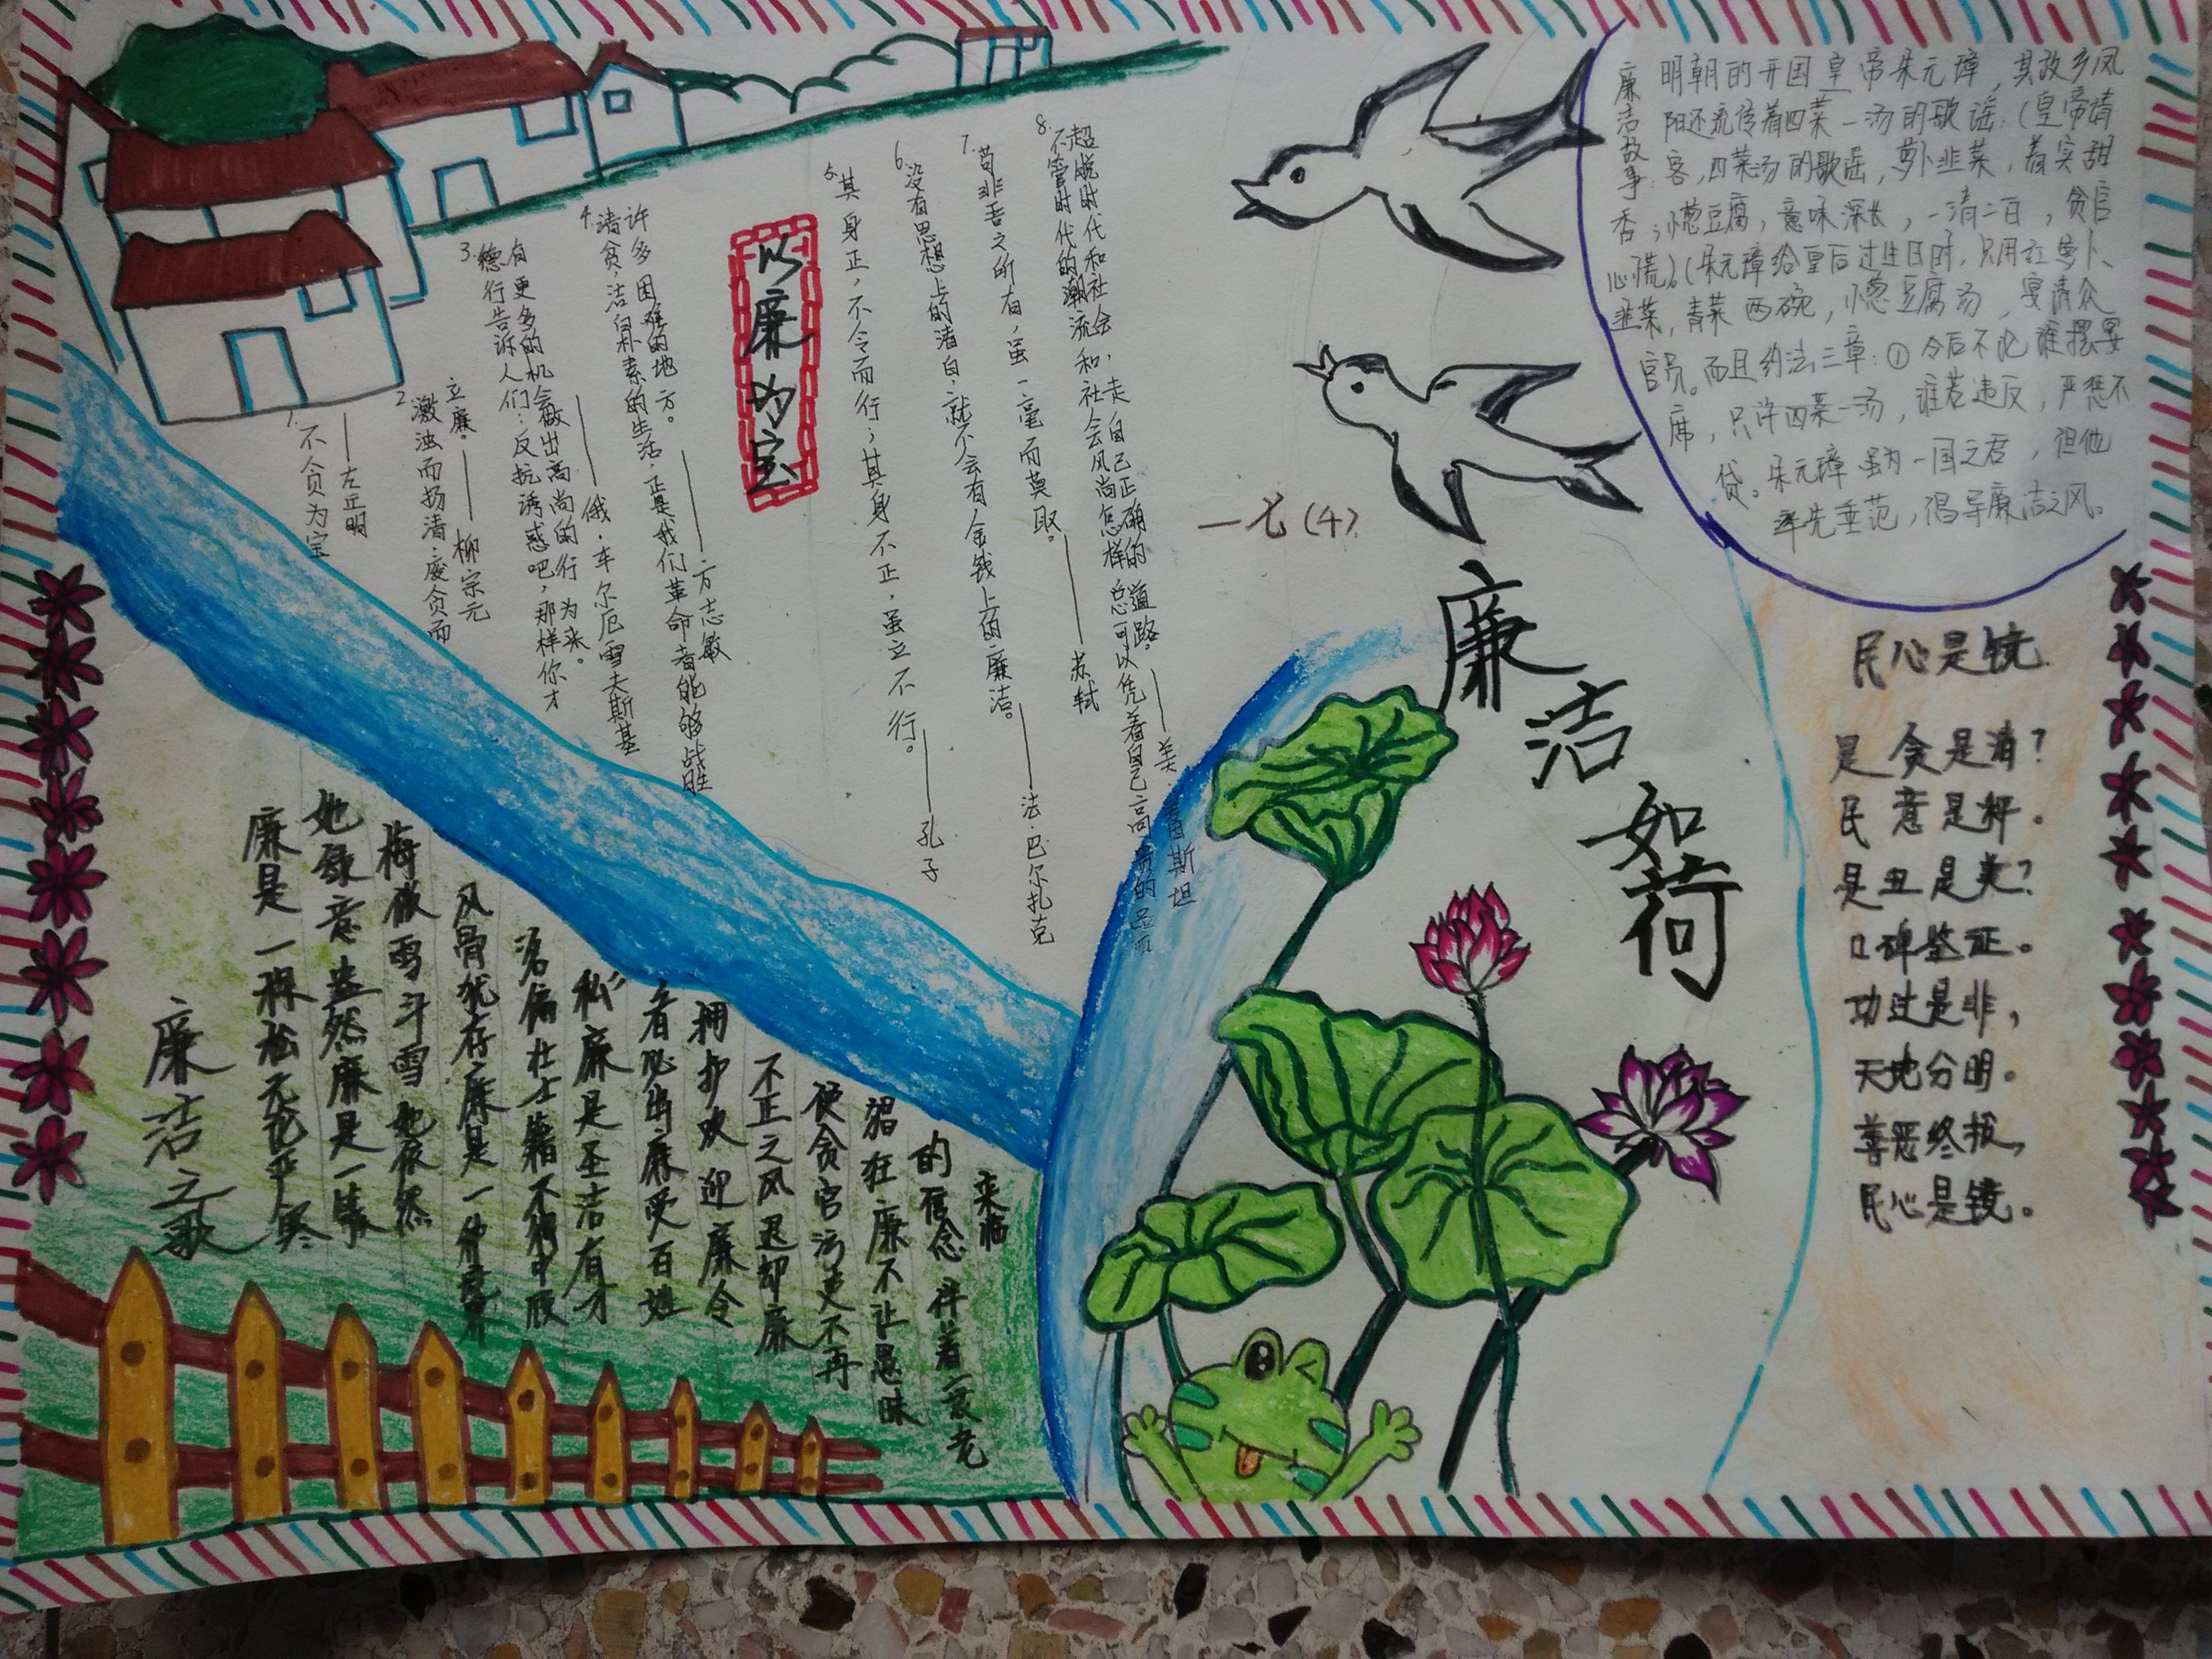 廉洁故事:
明朝的开国皇帝朱元璋，其故乡凤
阳还流传着四菜一汤的歌谣:(皇帝请
客，四菜汤的歌谣，萝卜韭菜，着实甜
香；小葱豆腐，意味深长，一清二白，贪官
心慌。)(朱元璋给皇后过生日时，只用红萝卜、
韭菜，青菜两碗，小葱豆腐汤，宴请众
官员。而且约法三章:①今后不论谁摆宴
席，只许四菜一汤，谁若违反，严惩不
贷。朱元璋虽为一国之君，但他
率先垂范，倡导廉洁之风。
以廉为宝
1.不贪为宝
——左丘明
2.激浊而扬清，废贪而
立廉。——柳宗元
3.德行告诉人们:反抗诱惑吧，那样你才
有更多的机会做出高尚的行为来。
——俄·车尔尼雪夫斯基
4.清贫，洁白朴素的生活，正是我们革命者能够战胜
许多困难的地方。——方志敏
5.其身正，不令而行；其身不正，虽立不行。——孔子
6.没有思想上的清白，就不会有金钱上的廉洁。——法·巴尔扎克
7.苟非吾之所有，虽一毫而莫取。——苏轼
8.不管时代的潮流和社会风尚怎样，总可以凭着自己高贵的品质
超脱时代和社会，走自己正确的道路。——美·爱因斯坦
一七(4)
廉洁如荷
民心是镜
是贪是清？
民意是秤。
是丑是美？
口碑鉴证。
功过是非，
天地分明。
善恶终报，
民心是镜。
廉洁之歌
廉是一棵松无论严寒
她绿意盎然廉是一棵
梅傲雪斗雪她依然
风骨犹存廉是一种
私"廉是圣洁有才
者必出廉受百姓
拥护欢迎廉令
不正之风退却廉
使贪官污吏不再
猖狂廉不让愚昧
的信念伴着一衰老
来临